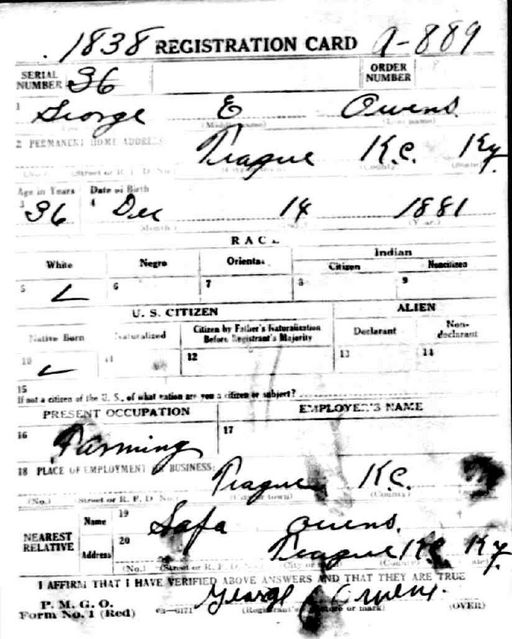 1838 REGISTRATION CARD A-889
SERIAL NUMBER 36 ORDER NUMBER
1 George E Owens
2 PERMANENT HOME ADDRESS
Teague K.C. Ky.
Age in Years Date of Birth
3 36 4 Dec 14 1881
RACE
White Negro Oriental Indian
Citizen Noncitizen
5 ✓ 6 7 8 9
U. S. CITIZEN ALIEN
Native Born Naturalized Citizen by Father's Naturalization Before Registrant's Majority Declarant Non-declarant
10 ✓ 11 12 13 14
15
If not a citizen of the U. S., of what nation are you a citizen or subject?
PRESENT OCCUPATION EMPLOYER'S NAME
16 Farming 17
18 PLACE OF EMPLOYMENT OR BUSINESS:
Teague K.C.
(No.) (Street or R. F. D. No.) (City or town) (County)
NEAREST RELATIVE Name 19 Safa Owens.
Address 20 Teague KC Ky
(No.) (Street or R. F. D. No.) (City or town) (State)
I AFFIRM THAT I HAVE VERIFIED ABOVE ANSWERS AND THAT THEY ARE TRUE
P. M. G. O.
Form No. 1 (Red) 03-6171 George E Owens. (Registrant's signature or mark) (OVER)